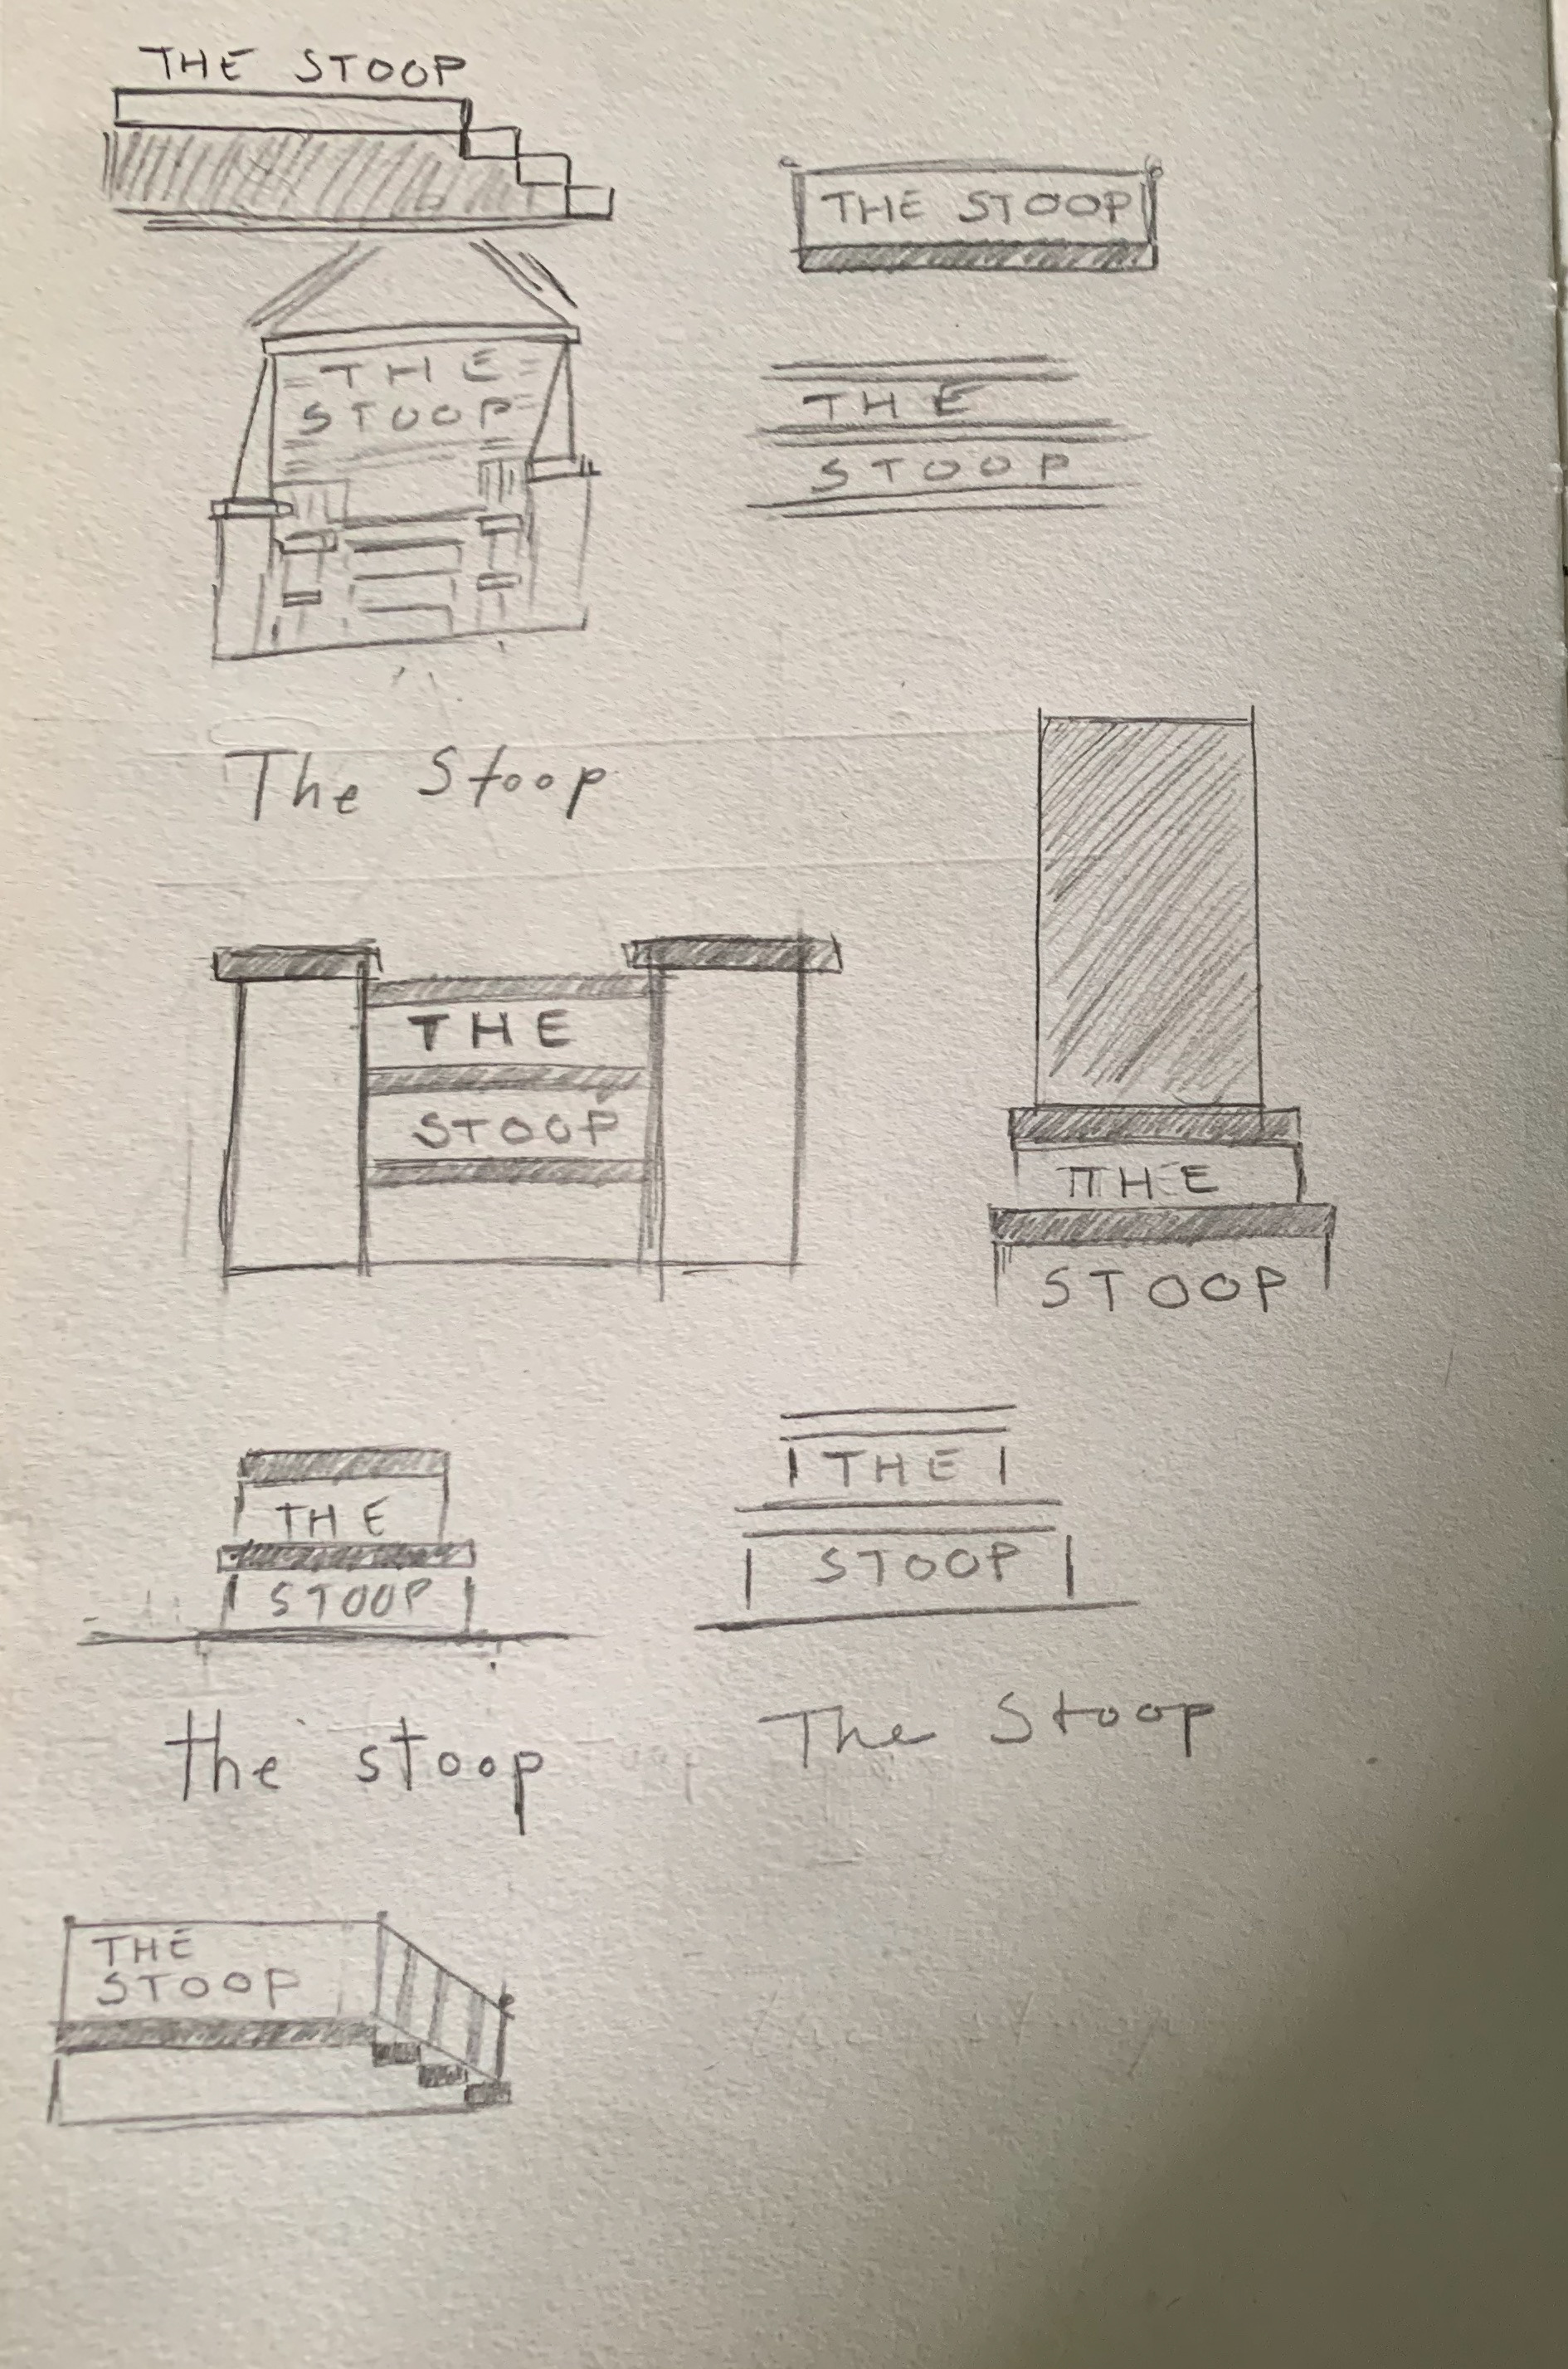 THE STOOP
THE STOOP
THE
STOOP
THE
STOOP
The Stoop
THE
STOOP
THE
STOOP
THE
STOOP
THE
STOOP
the stoop
The Stoop
THE
STOOP